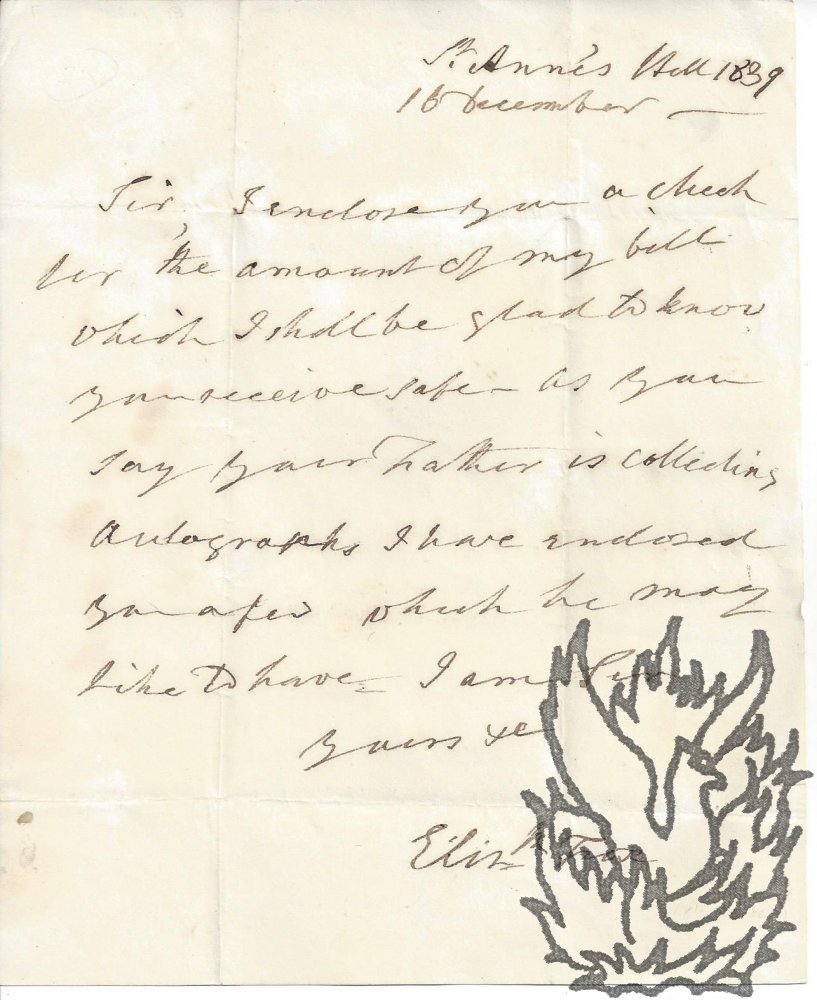 St. Anne's Hill 1839
16 December —
Sir, I enclose you a check
for the amount of my bill
which I shall be glad to know
you receive safe - As you
say your Father is collecting
Autographs I have enclosed
you a few which he may
like to have - I am Sir
yours &c
Elizth Fox